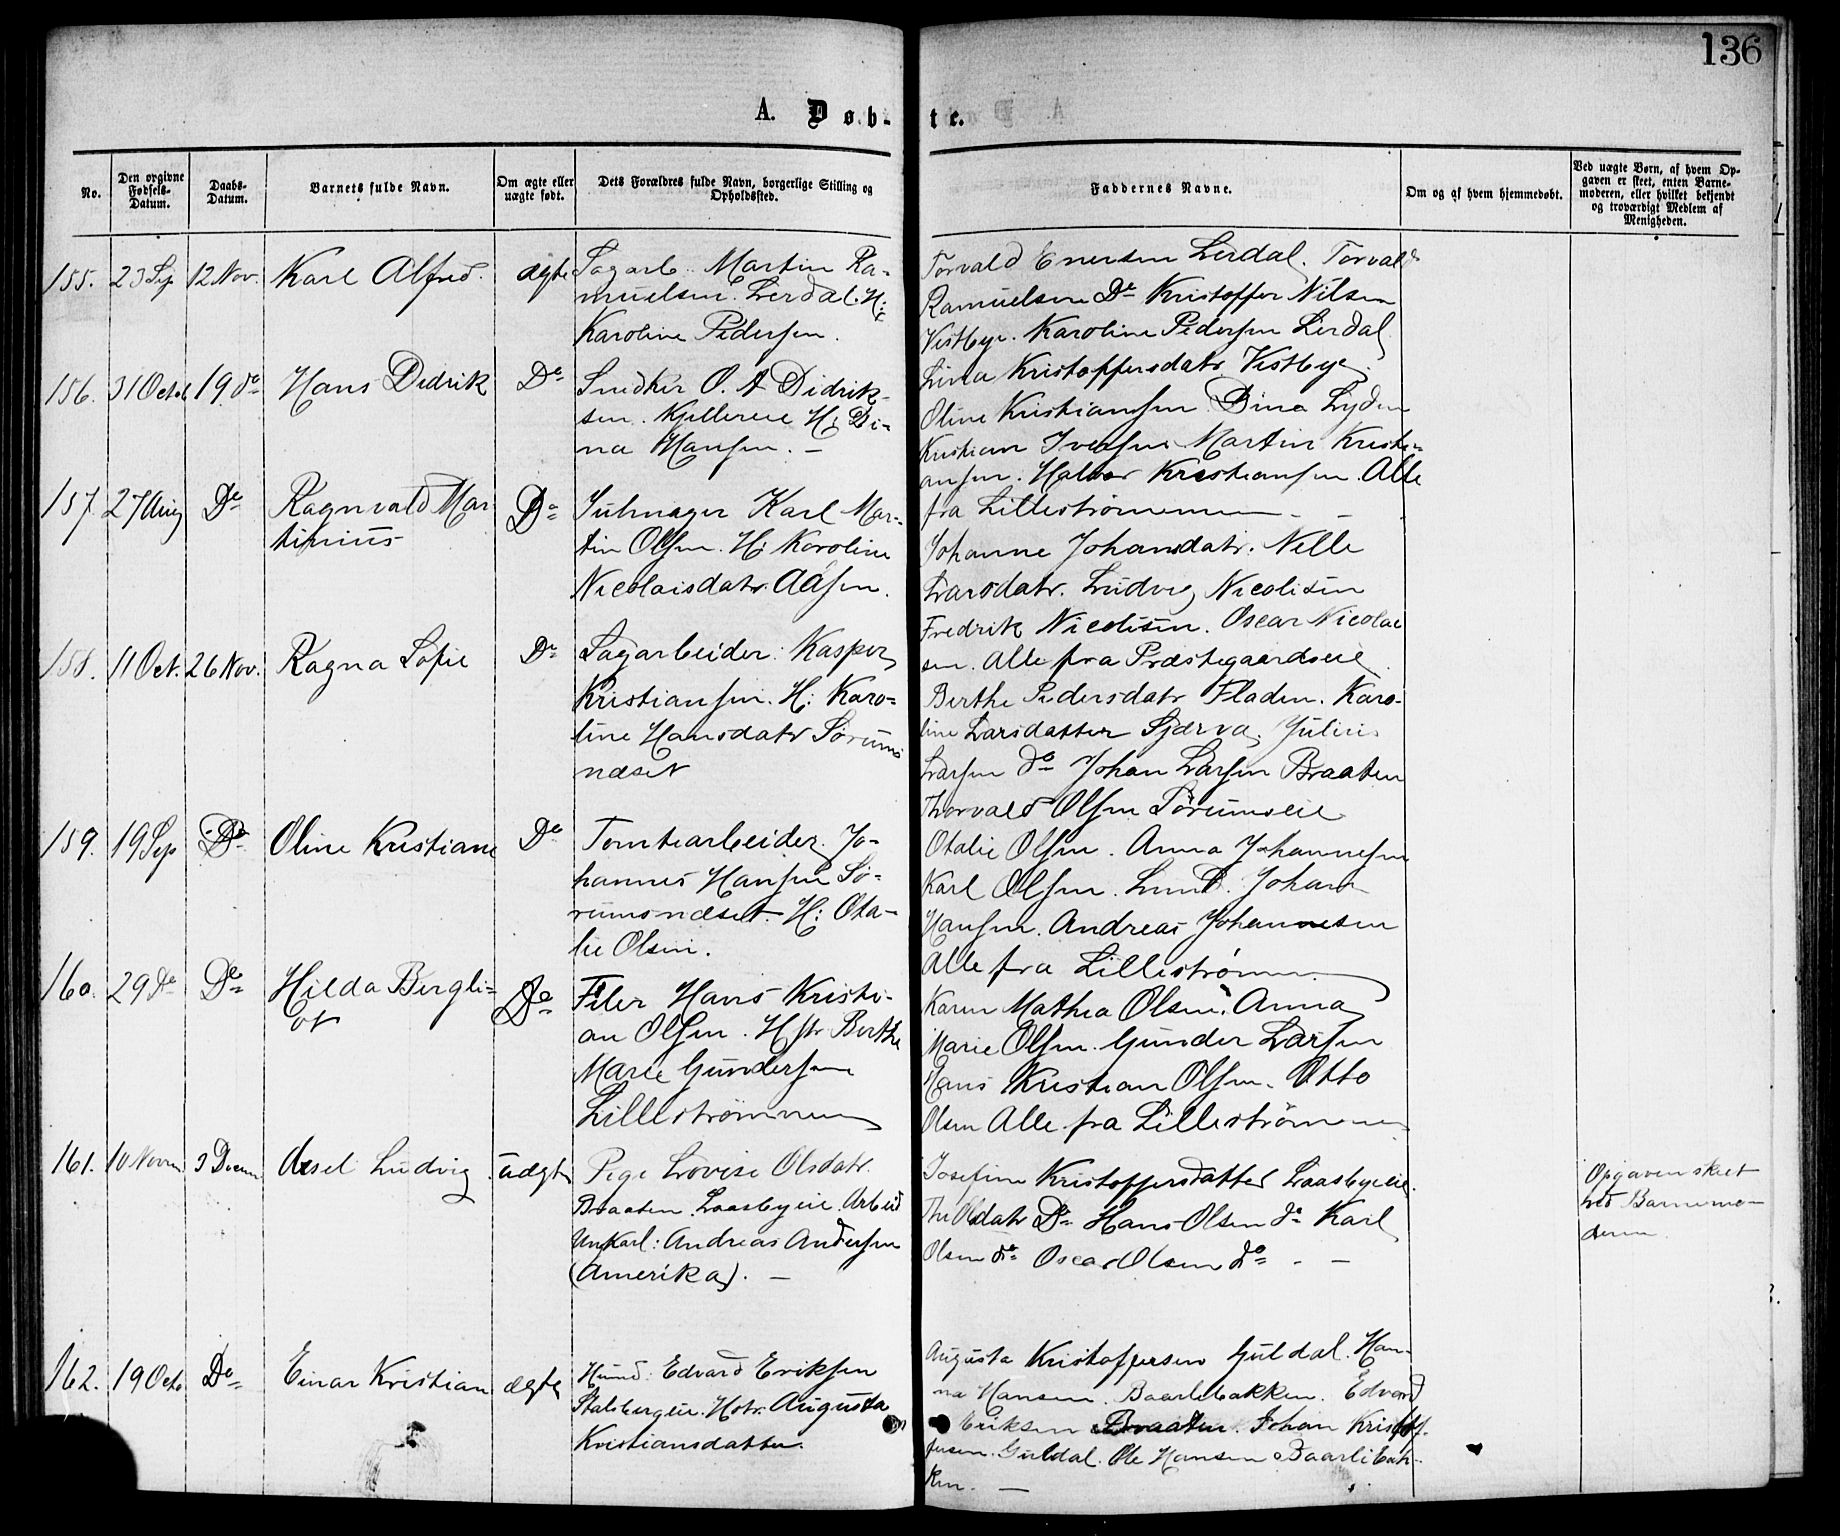 136
A. Døb-
te.
No.
Den opgivne
Fødsels-
Datum.
Daabs-
Datum.
Barnets fulde Navn.
Om ægte eller
uægte født.
Dets Forældres fulde Navn, borgerlige Stilling og
Opholdssted.
Faddernes Navne.
Om og af hvem hjemmedøbt.
Ved uægte Børn, af hvem Op-
gaven er skeet, enten Barne-
moderen, eller hvilket bekjendt
og troværdigt Medlem af
Menigheden.
155. 23 Sep 12 Nov. Karl Alfred. ægte
Sagarb. Martin Ra-
muelsen. Lerdal. H:
Karoline Pedersen.
Torvald Enersen Lerdal. Torvald
Ramuelsen De Kristoffer Nilsen
Vestbye. Karoline Pedersen Lerdal
Lina Kristoffersdatr. Vestbye.
156. 31 Octob 19. de Hans Dedrik De
Snedker O. A Didrik-
sen. Kjellereie H: Di-
na Hansen. —
Oline Kristiansen. Dina Lyden
Kristian Iversen Martin Kristi-
ansen. Halvor Kristiansen. Alle
fra Lillestrømmen —
157. 27 Aug De Ragnvald Mar-
tinius De
Karl Mar-
tin Olsen. H: Karoline
Nicolaisdatr. Aasen.
Johanne Johansdatr. Nelle
Larsdatr. Ludvig Nicolisen
Fredrik Nicolisen. Oscar Nicolai
sen. Alle fra Præstegaardseie
158. 11 Oct. 26 Nov. Ragna Sofie De
Sagarbeider: Kasper
Kristiansen. H: Karo-
line Hansdatr Sørums
næset
Berthe Pedersdatr Fladen. Karo-
line Larsdatter Sjærva. Julius
Larsen do Johan Larsen Braaten
Thorvald Olsen Sørumseie
159. 19 Sep De Oline Kristiane De
Tomtearbeider. Jo-
hannes Hansen Sø-
rumsnæset. H: Ota-
lie Olsen.
Otalie Olsen. Anna Johannesen
Karl Olsen. Lund. Johan
Hansen. Andreas Johannesen
Alle fra Lillestrømmen
160. 29 De De Hilda Bergli-
ot De
Filer Hans Kristi-
an Olsen. Hstr Berthe
Marie Gundersen
Lillestrømmen
Karen Mathea Olsen. Anna
Marie Olsen. Gunder Larsen
Hans Kristian Olsen. Otto
Olsen Alle fra Lillestrømmen
161. 10 Novem 3 Decem Axel Ludvig uægte
Pige Lovise Olsdatr.
Braaten. Laasbyeie. Arbeid
Ungkarl: Andreas Andersen
(Amerika). —
Josefine Kristoffersdatter Laasbyeie.
Olsdatr De Hans Olsen de Karl
Olsen de Oscar Olsen do —
Opgaven skeet
ved Barnemo-
deren.
162. 19 Octo De Einar Kristian ægte
Husmd. Edvard Eriksen
Stalsbergeie. Hstr. Augusta
Kristiansdatter.
Augusta Kristoffersen Guldal. Han-
na Hansen. Baarlibakken. Edvard
Eriksen Braaten. Johan Kristof-
fersen. Guldal. Ole Hansen Baarlibak-
ken. —